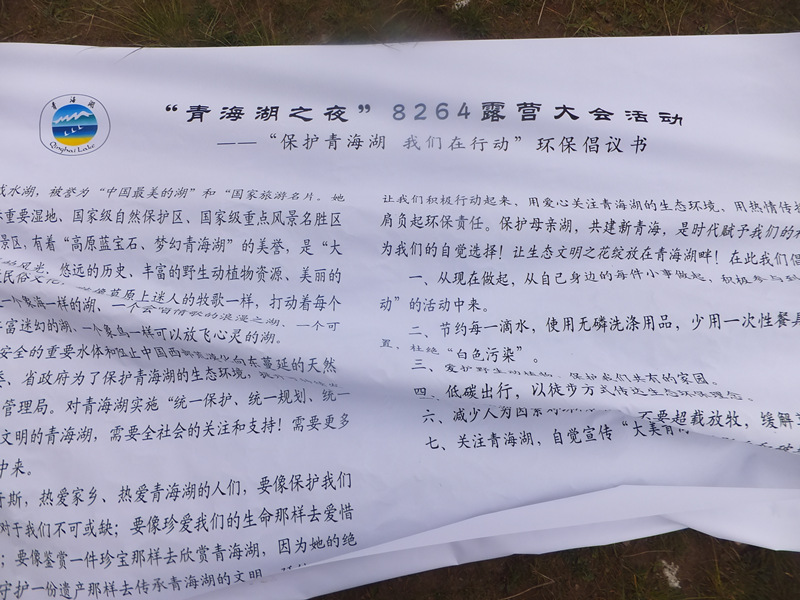 青海湖
Qinghai Lake
“青海湖之夜”8264露营大会活动
——“保护青海湖 我们在行动”环保倡议书
咸水湖，被誉为“中国最美的湖”和“国家旅游名片。她
重要湿地、国家级自然保护区、国家级重点风景名胜区
景区，有着“高原蓝宝石、梦幻青海湖”的美誉，是“大
悠远的历史、丰富的野生动植物资源、美丽的
草原上迷人的牧歌一样，打动着每个
一个象海一样的湖、一个会唱情歌的浪漫之湖、一个可
富迷幻的湖、一个象鸟一样可以放飞心灵的湖。
安全的重要水体和阻止中国西部荒漠化向东蔓延的天然
、省政府为了保护青海湖的生态环境，
管理局。对青海湖实施“统一保护、统一规划、统一
文明的青海湖，需要全社会的关注和支持！需要更多
中来。
斯，热爱家乡、热爱青海湖的人们，要像保护我们
对于我们不可或缺；要像珍爱我们的生命那样去爱惜
；要像鉴赏一件珍宝那样去欣赏青海湖，因为她的绝
守护一份遗产那样去传承青海湖的文明，
让我们积极行动起来，用爱心关注青海湖的生态环境，用热情传
肩负起环保责任。保护母亲湖，共建新青海，是时代赋予我们的
为我们的自觉选择！让生态文明之花绽放在青海湖畔！在此我们倡
一、从现在做起，从自己身边的每件小事做起，积极参与到
动”的活动中来。
二、节约每一滴水，使用无磷洗涤用品，少用一次性餐具
置，杜绝“白色污染”。
三、爱护野生动植物，保护我们共有的家园。
四、低碳出行，以徒步方式传达生态环保理念。
六、减少人为因素 不要超载放牧，缓解
七、关注青海湖，自觉宣传“大美青